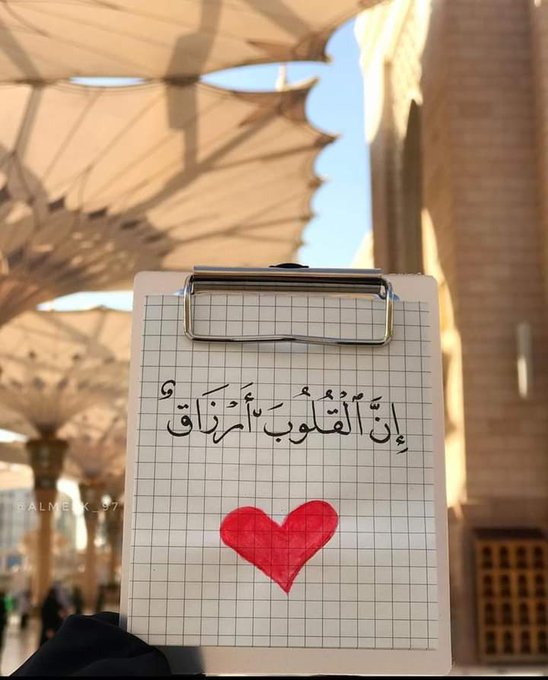 إِنَّ ٱلْقُلُوبَ أَرْزَاقٌ
@ALMEEK_97